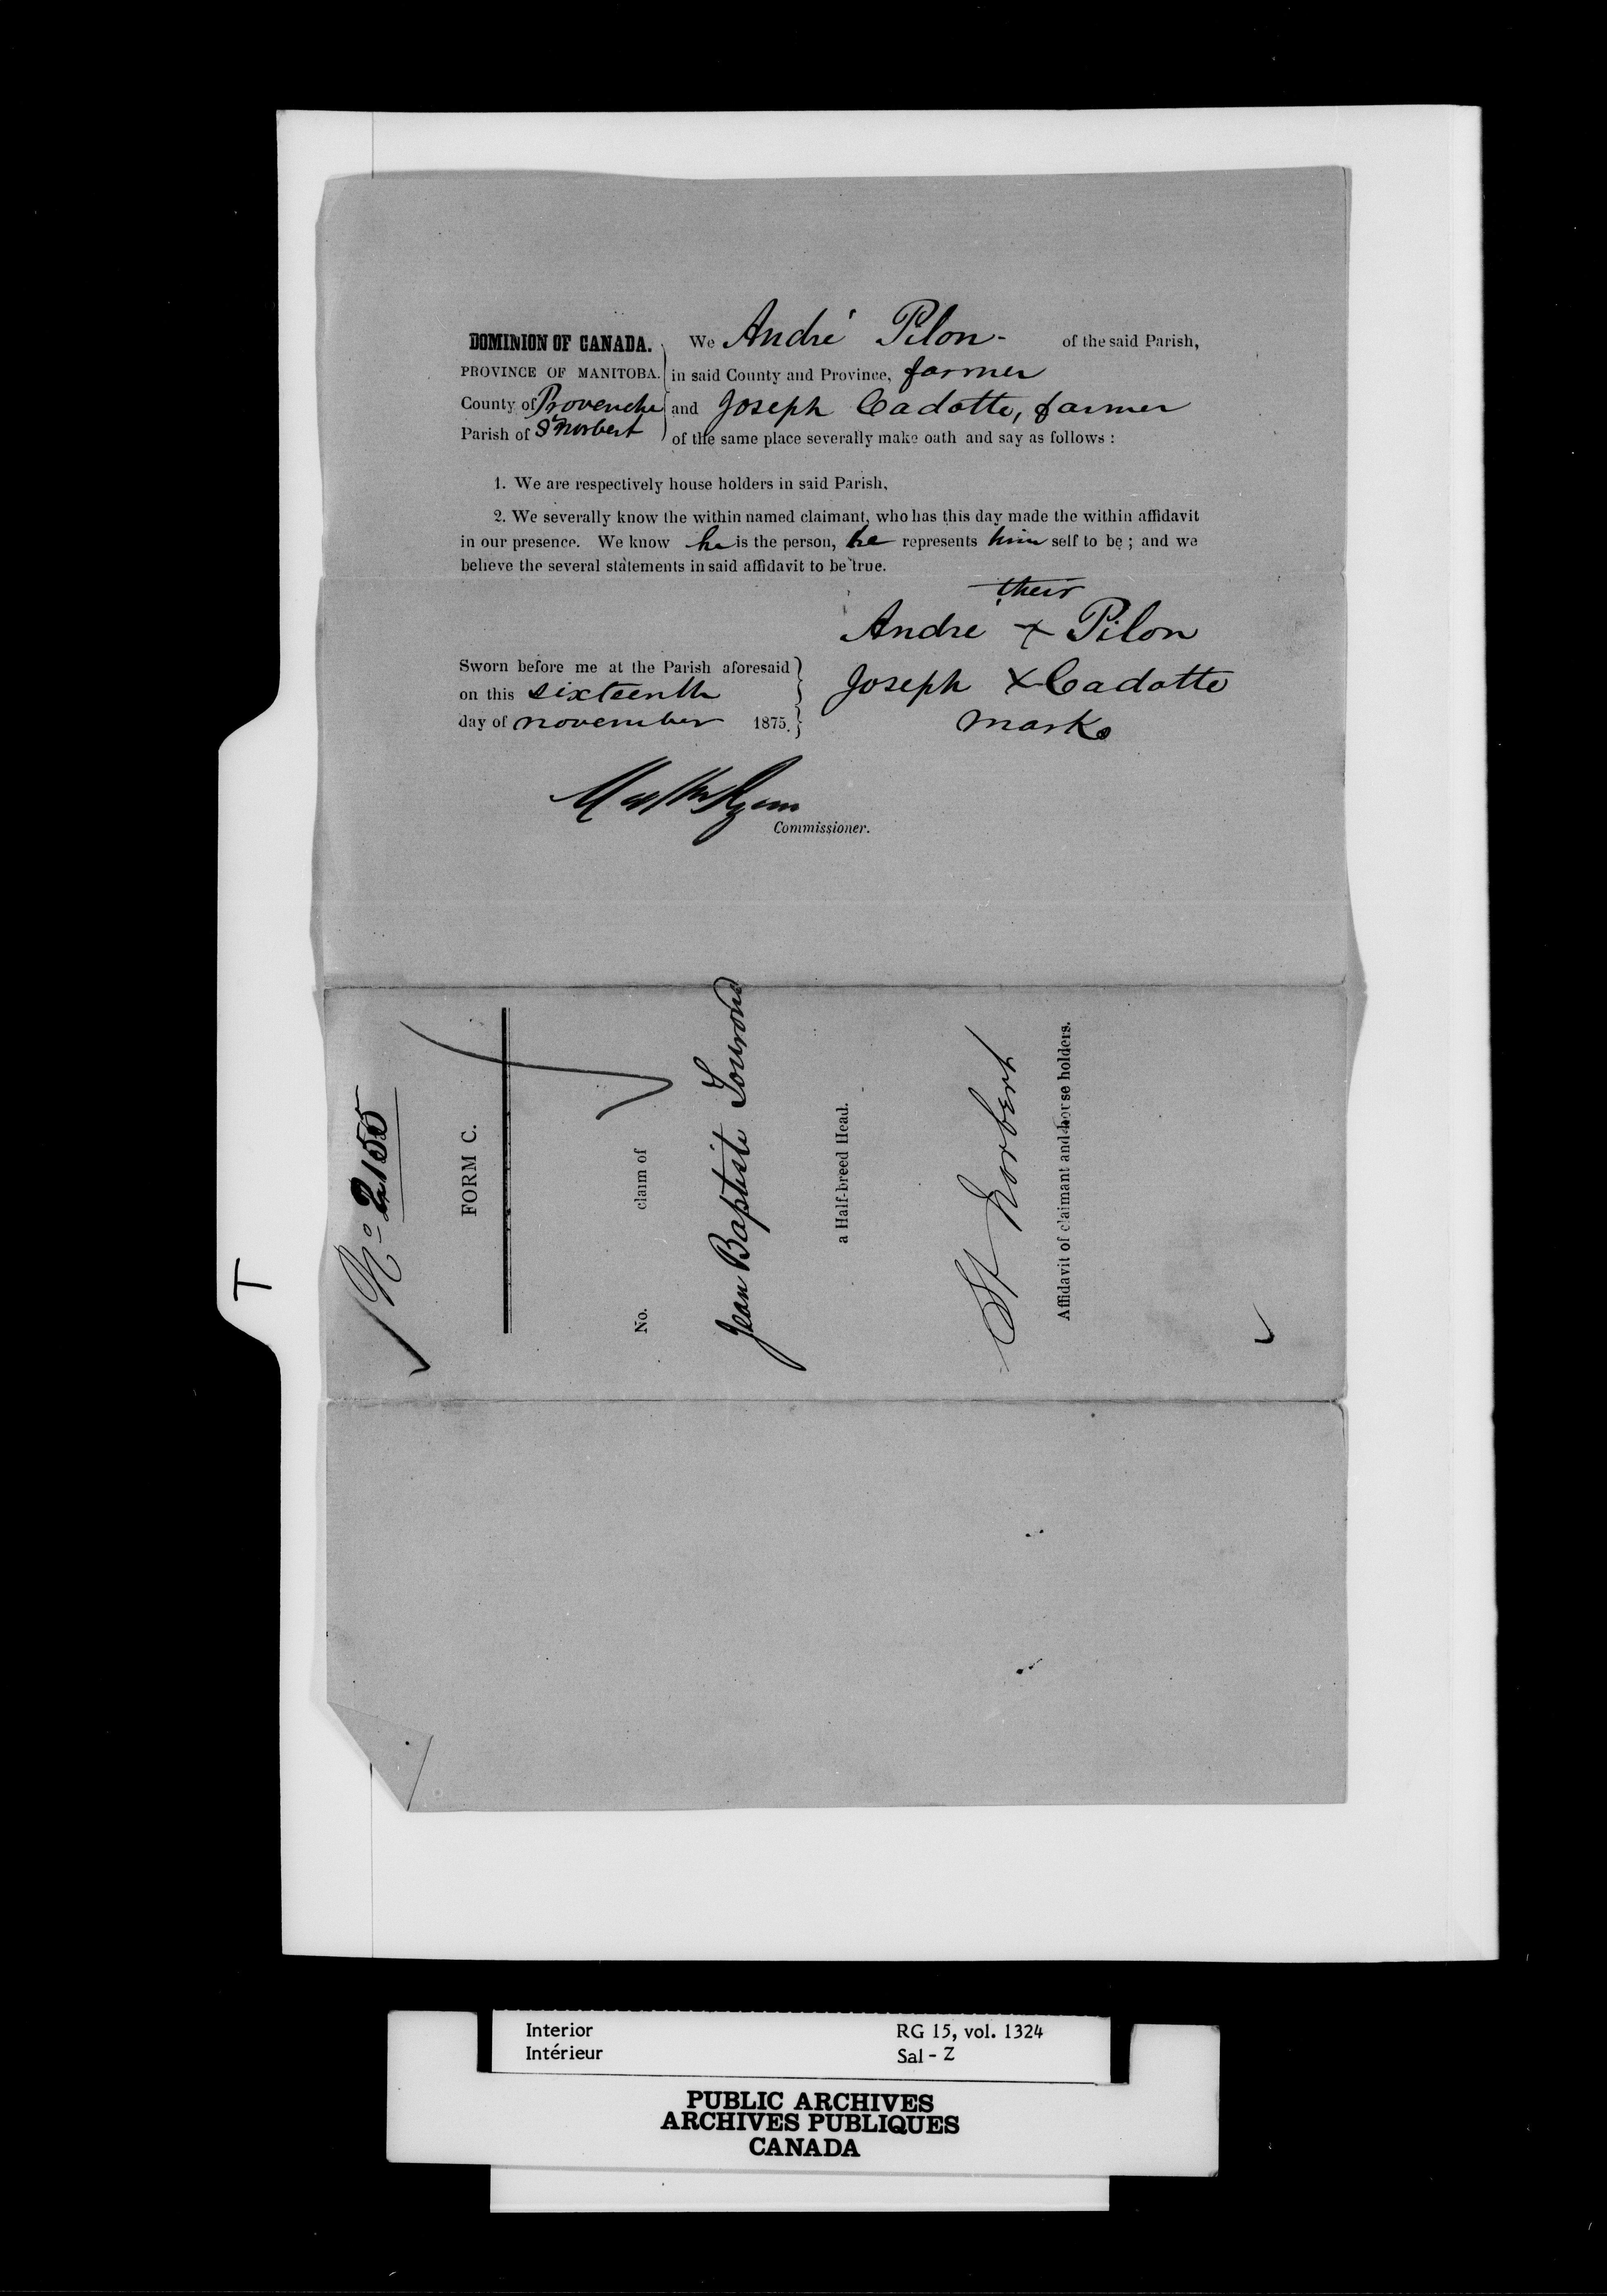 DOMINION OF CANADA. We André Pilon - of the said Parish,
PROVINCE OF MANITOBA. in said County and Province, farmer
County of Provencher and Joseph Cadotte, farmer
Parish of St Norbert of the same place severally make oath and say as follows :
1. We are respectively house holders in said Parish,
2. We severally know the within named claimant, who has this day made the within affidavit
in our presence. We know he is the person, he represents him self to be ; and we
believe the several statements in said affidavit to be true.
their
Andre x Pilon
Sworn before me at the Parish aforesaid
Joseph x Cadotte
on this sixteenth
day of november 1875.
marks
Commissioner.
No 2155
FORM C.
No. claim of
Jean Baptiste Tourond
a Half-breed Head.
St Norbert
Affidavit of claimant and house holders.
T
Interior RG 15, vol. 1324
Intérieur Sal - Z
PUBLIC ARCHIVES
ARCHIVES PUBLIQUES
CANADA